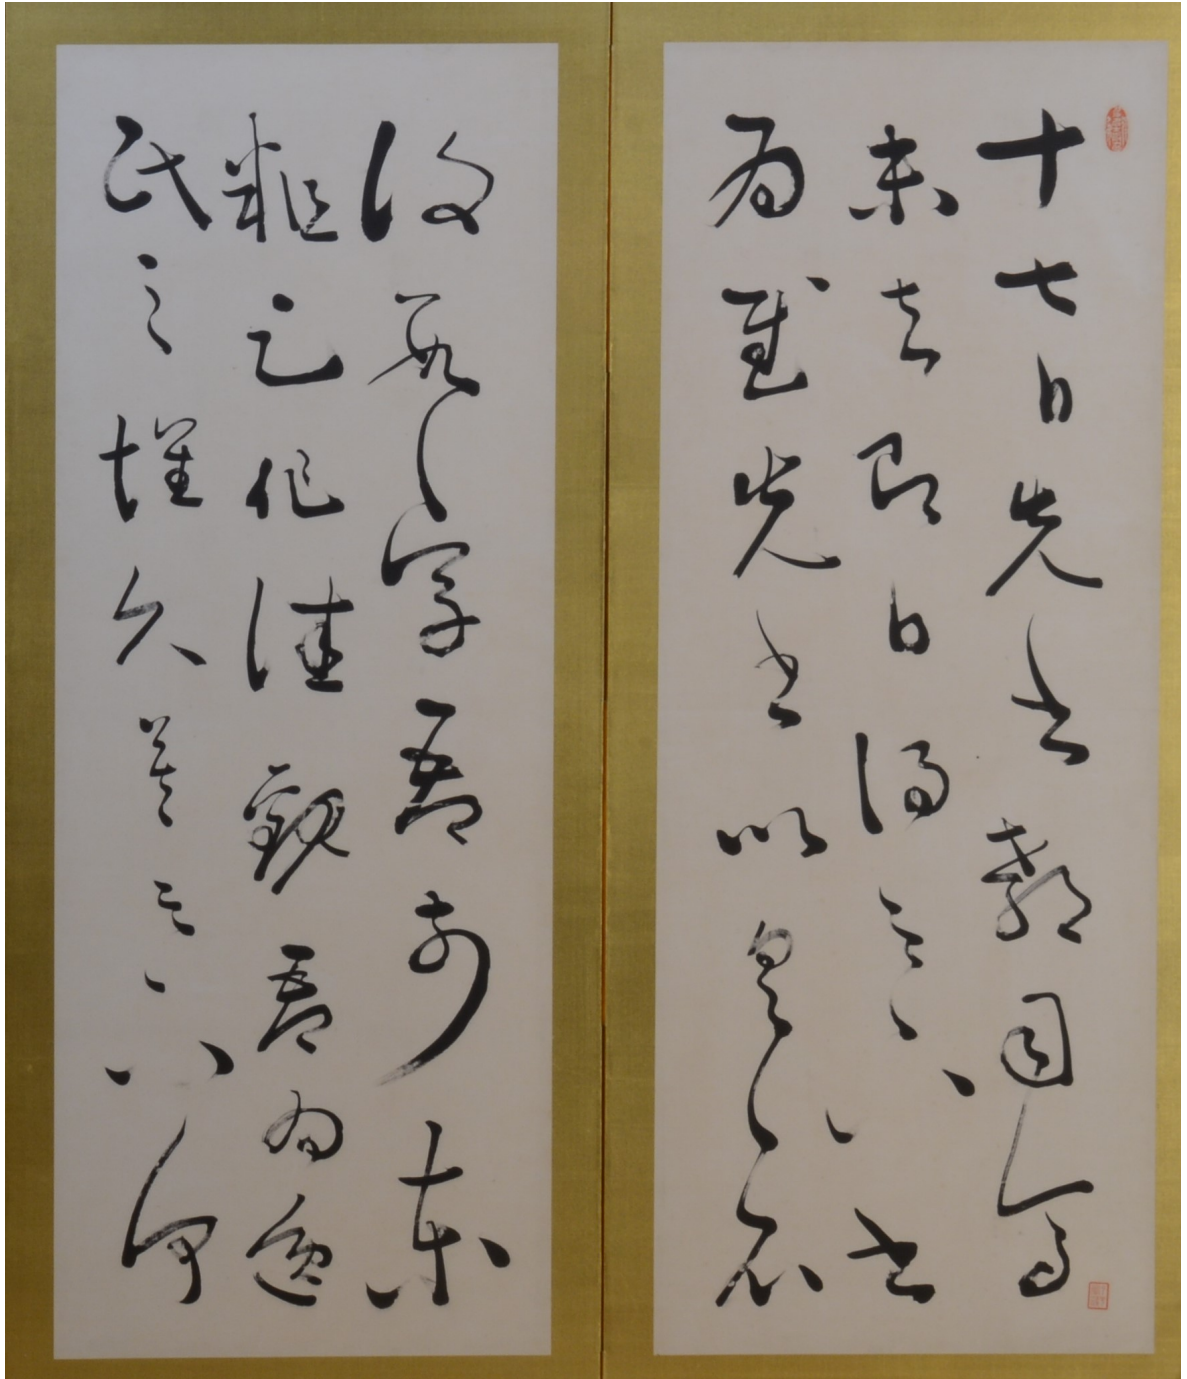 十七日先書郗司馬
未去即日得足下書
為慰先書以具示
復數字吾前東
粗足作佳觀吾為逸
民之懷久矣足下何